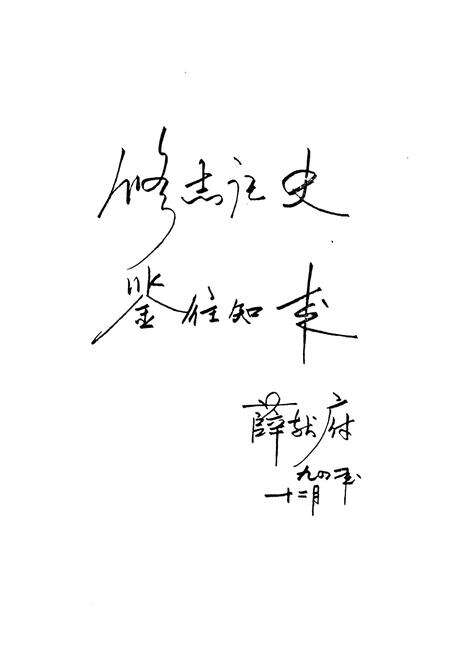 修志记史
鉴往知来
薛献府
九四年
十二月